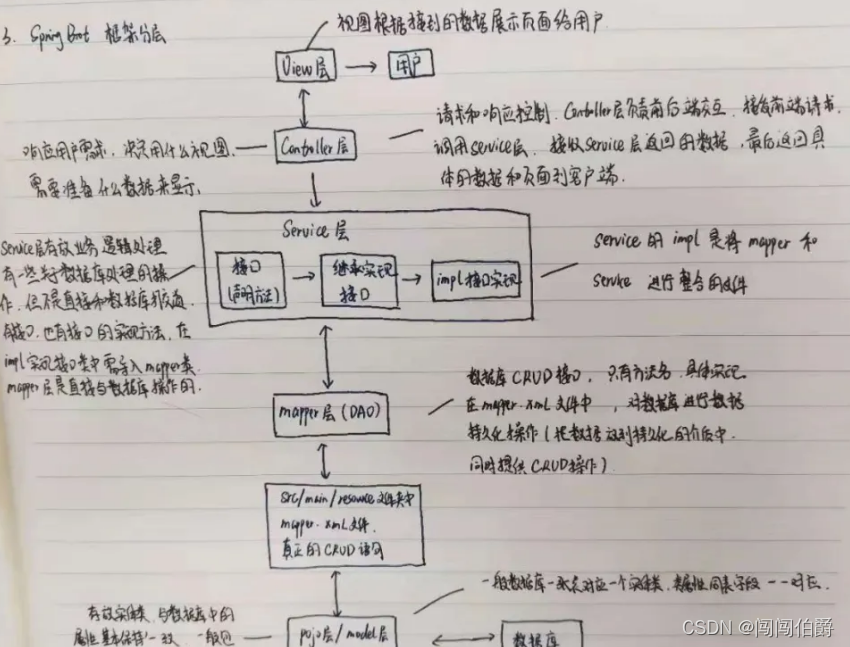 3. Spring Boot 框架分层
视图根据接到的数据展示页面给用户
View层
用户
请求和响应控制. Controller层负责前后端交互, 接受前端请求,
调用service层, 接收Service层返回的数据, 最后返回具
体的数据和页面到客户端.
Controller层
响应用户需求, 决定用什么视图,
需要准备什么数据来显示,
Service层
接口
(声明方法)
继承实现
接口
impl接口实现
Service层存放业务逻辑处理
有一些关于数据库处理的操
作, 但不是直接和数据库打交道
有接口, 也有接口的实现方法, 在
impl实现接口类中需导入mapper类
mapper层是直接与数据库操作的.
service的 impl 是将 mapper 和
service 进行整合的文件
mapper层 (DAO)
数据库CRUD接口, 只有方法名, 具体实现
在mapper.xml文件中, 对数据库进行数据
持久化操作(把数据放到持久化的介质中,
同时提供CRUD操作)
src/main/resource文件夹中
mapper.xml文件.
真正的CRUD语句
一般数据库一张表对应一个实体类, 类属性同表字段一一对应.
存放实体类, 与数据库中的
属性基本保持一致, 一般包
pojo层/model层
数据库
CSDN @闯闯伯爵